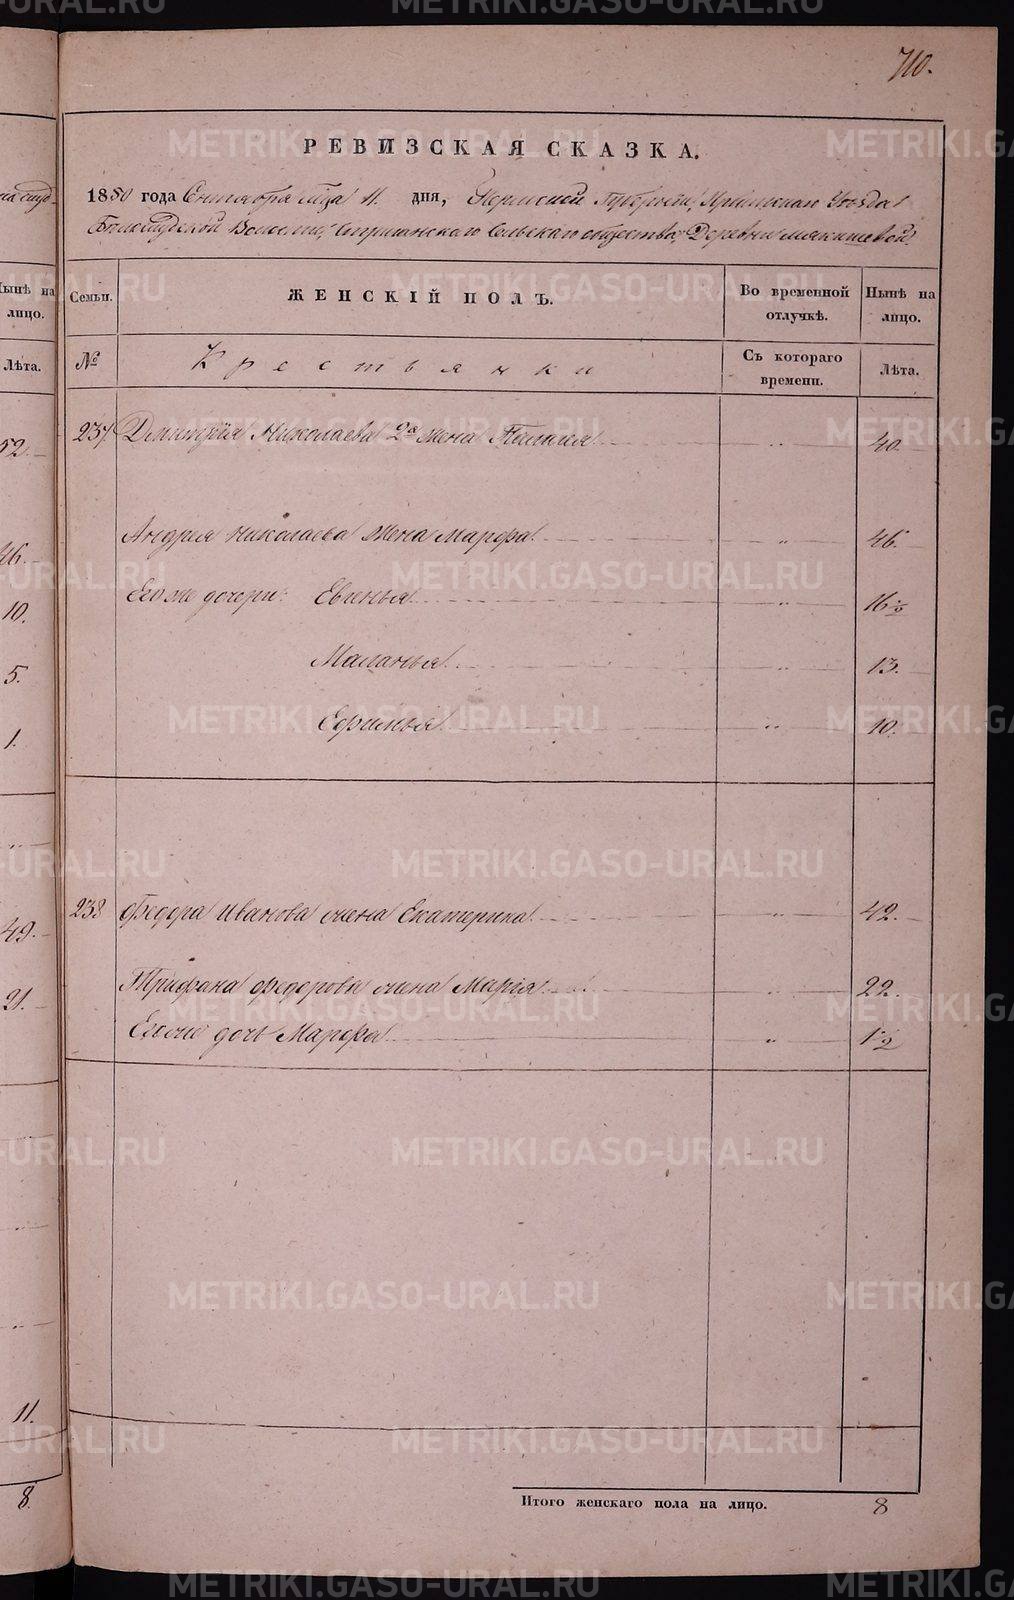 710.
РЕВИЗСКАЯ СКАЗКА.
1850 года Сентября м-ца 11. дня, Пермской Губернии, Уѣзда
Волости, Сельскаго общества, Деревни Мякишевой
Семьи. ЖЕНСКІЙ ПОЛЪ. Во временной отлучкѣ. Нынѣ на лицо.
№ Крестьянки Съ котораго времени. Лѣта.
237 Дмитрія Николаева 2я жена " 40.
Андрея Николаева жена Марфа " 46.
Его же дочери: Евгенья " 16½
Маланья " 13.
Ефимья " 10.
238 Федора Иванова жена Екатерина " 42.
Трифана Федорова жена Марія " 22.
Его же дочь Марфа " ½
Итого женскаго пола на лицо. 8
Нынѣ на лицо.
Лѣта.
52.
46.
10.
5.
1.
49.
21.
11.
8.
METRIKI.GASO-URAL.RU